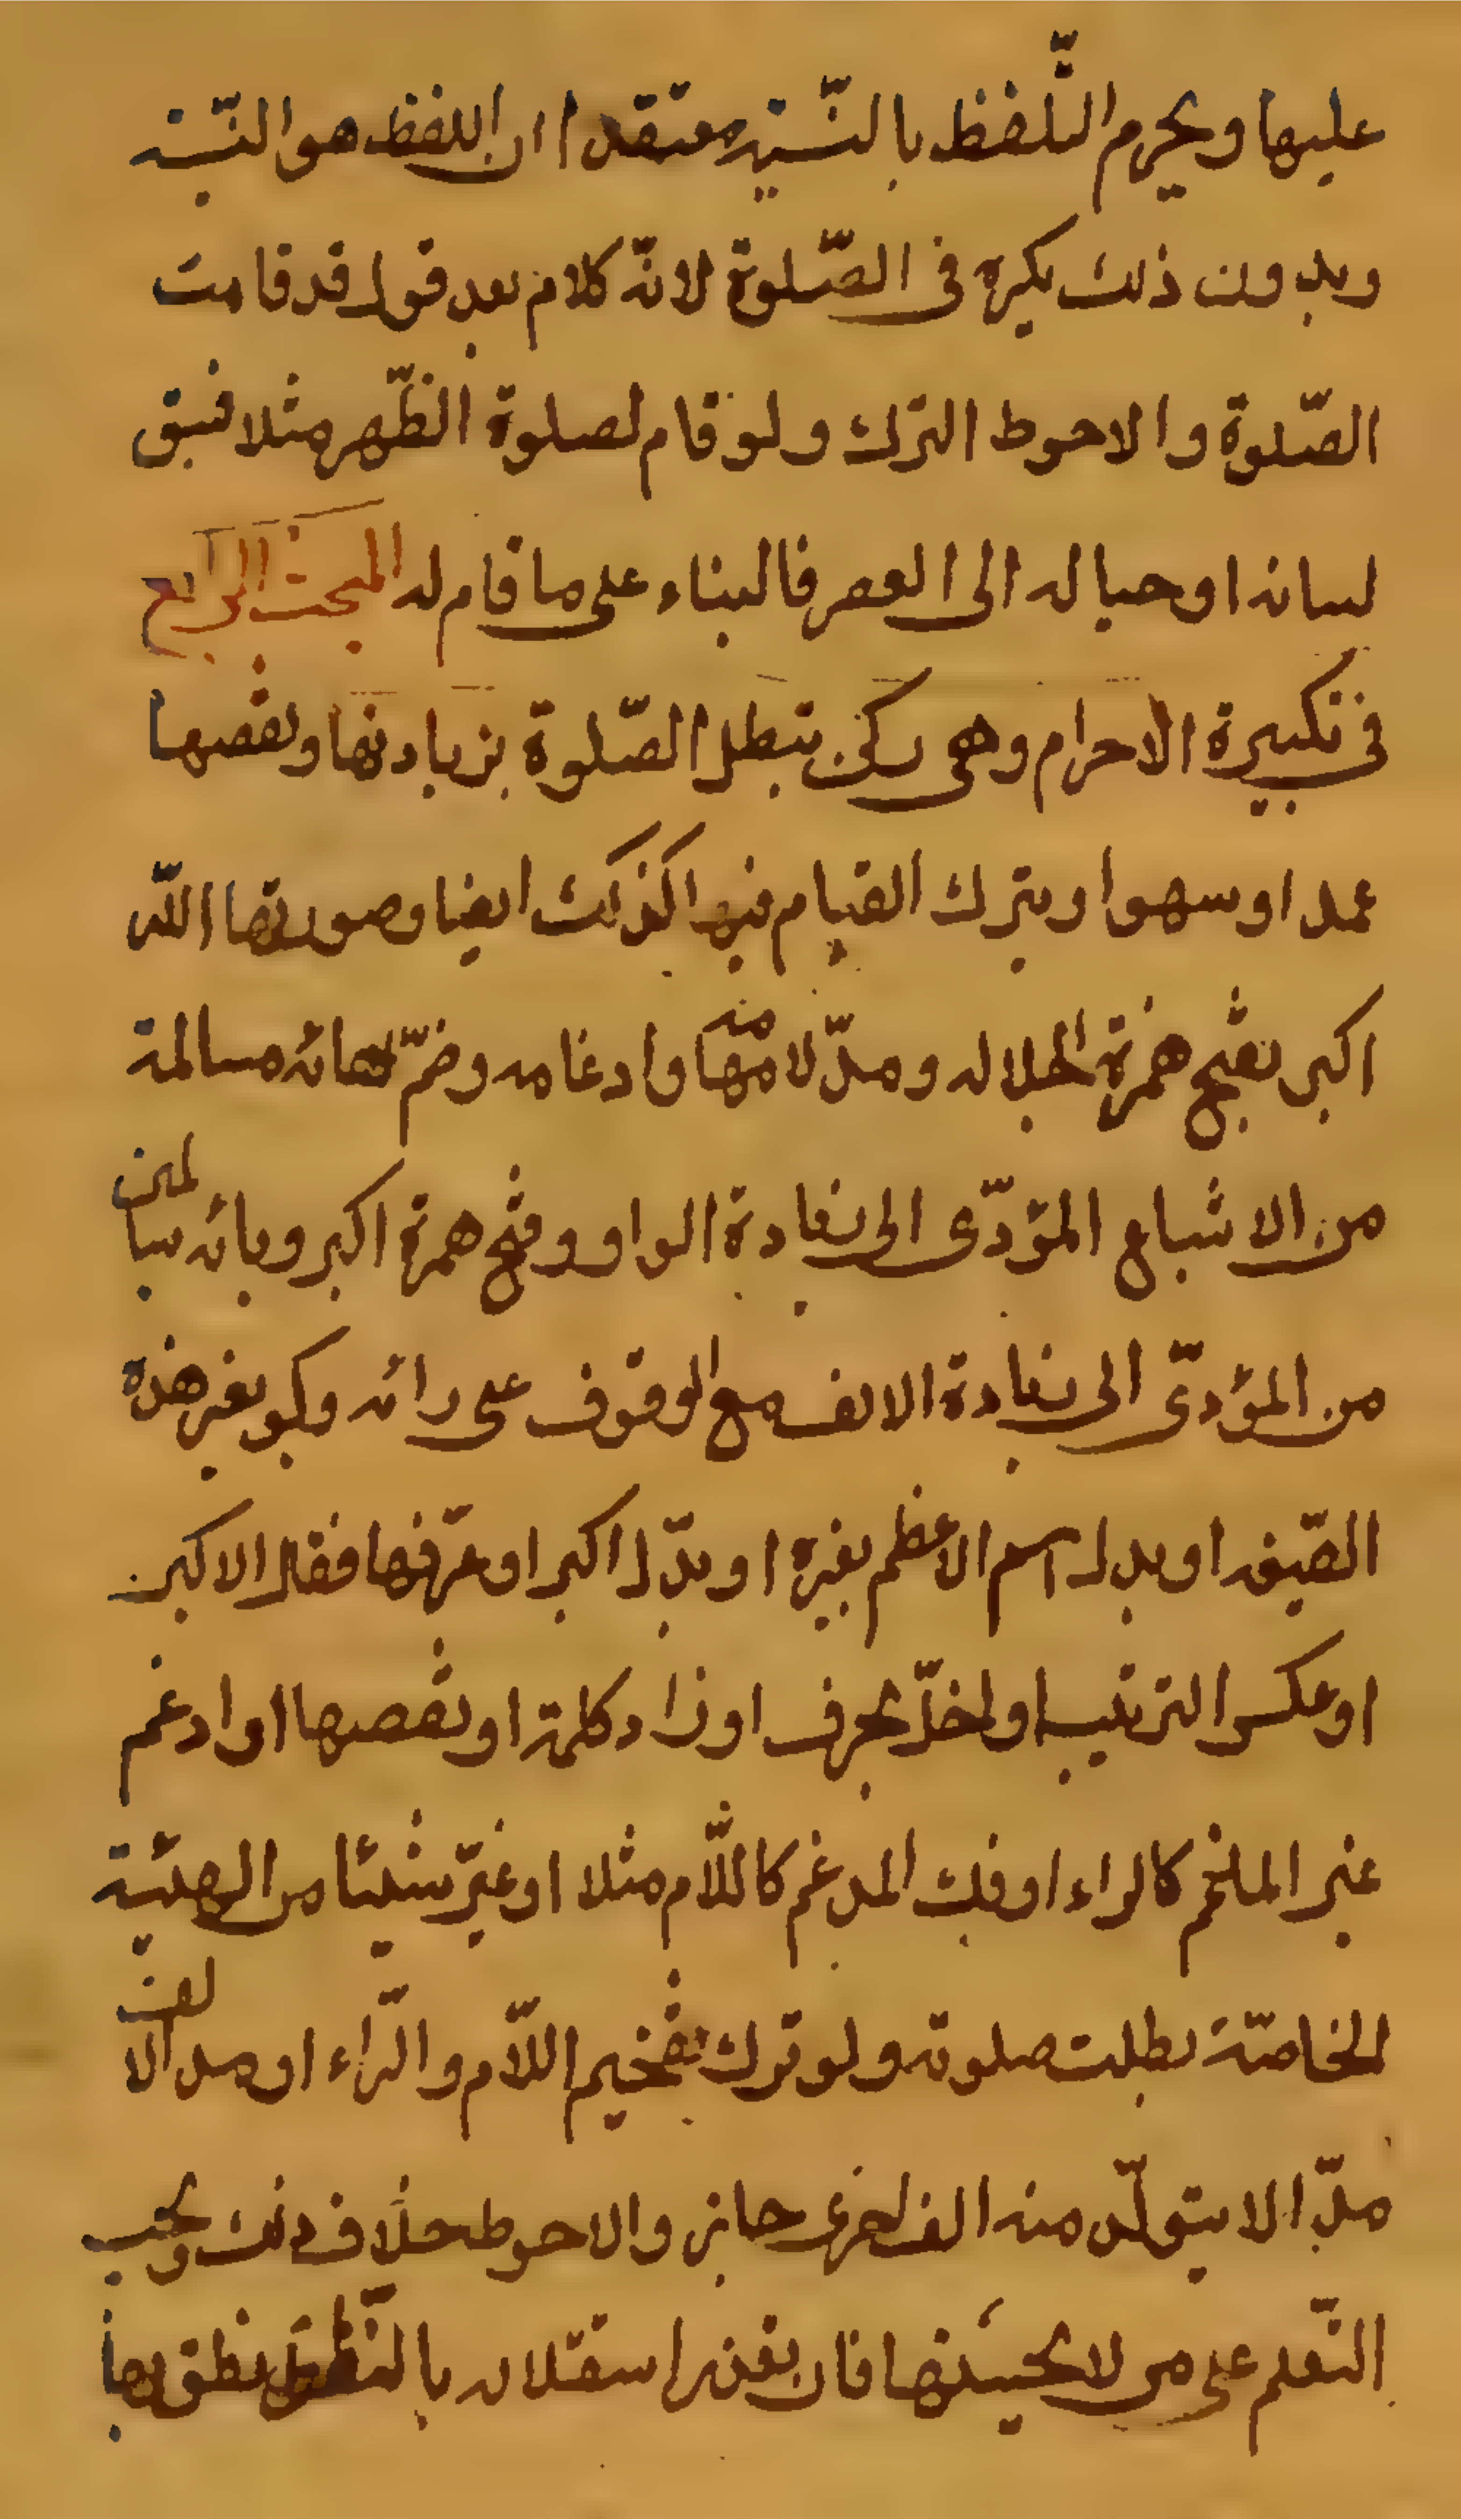 عليها ويحرم التّلفظ بالنّية معتقدا ان اللفظ هو النّية
وبدون ذلك يكره فى الصّلوة لانّه كلام بعد قول قد قامت
الصّلوة والاحوط الترك ولو قام لصلوة الظّهر مثلا فسبق
لسانه او خياله الى العصر فالبناء على ما قام له المبحث الرابع
فى تكبيرة الاحرام وهى ركن تبطل الصّلوة بزيادتها ونقصها
عمدا او سهوا وبترك القيام فيها كذلك ايضا وصورتها اللّه
اكبر بفتح همزة الجلاله ومدّ لامها منه وادغامه وضمّ هائه سالمة
من الاشباع المؤدّى الى زيادة الواو وفتح همزة اكبر وبائه سالمين
من المؤدّى الى زيادة الالف مع الوقوف على رائه ولو بغير هذه
الصّيغه او بدل اسم الاعظم بغيره او بدّل اكبر او عرّفها فقال الاكبر
او عكس الترتيب او اخلّ بحرف او زاد كلمة او نقصها او ادغم
غير المدغم كالراء او فك المدغم كاللّام مثلا او غيّر شيئا من الهيئية
الخاصّة بطلت صلوته ولو ترك تفخيم اللّام والرّاء او مد الالف
مدّا لا يتولّد منه الف اخرى جاز والاحوط خلاف ذلك ويجب
التّعلم على من لا يحسنها فان تعذر استقلاله بالتّطق نطق بها